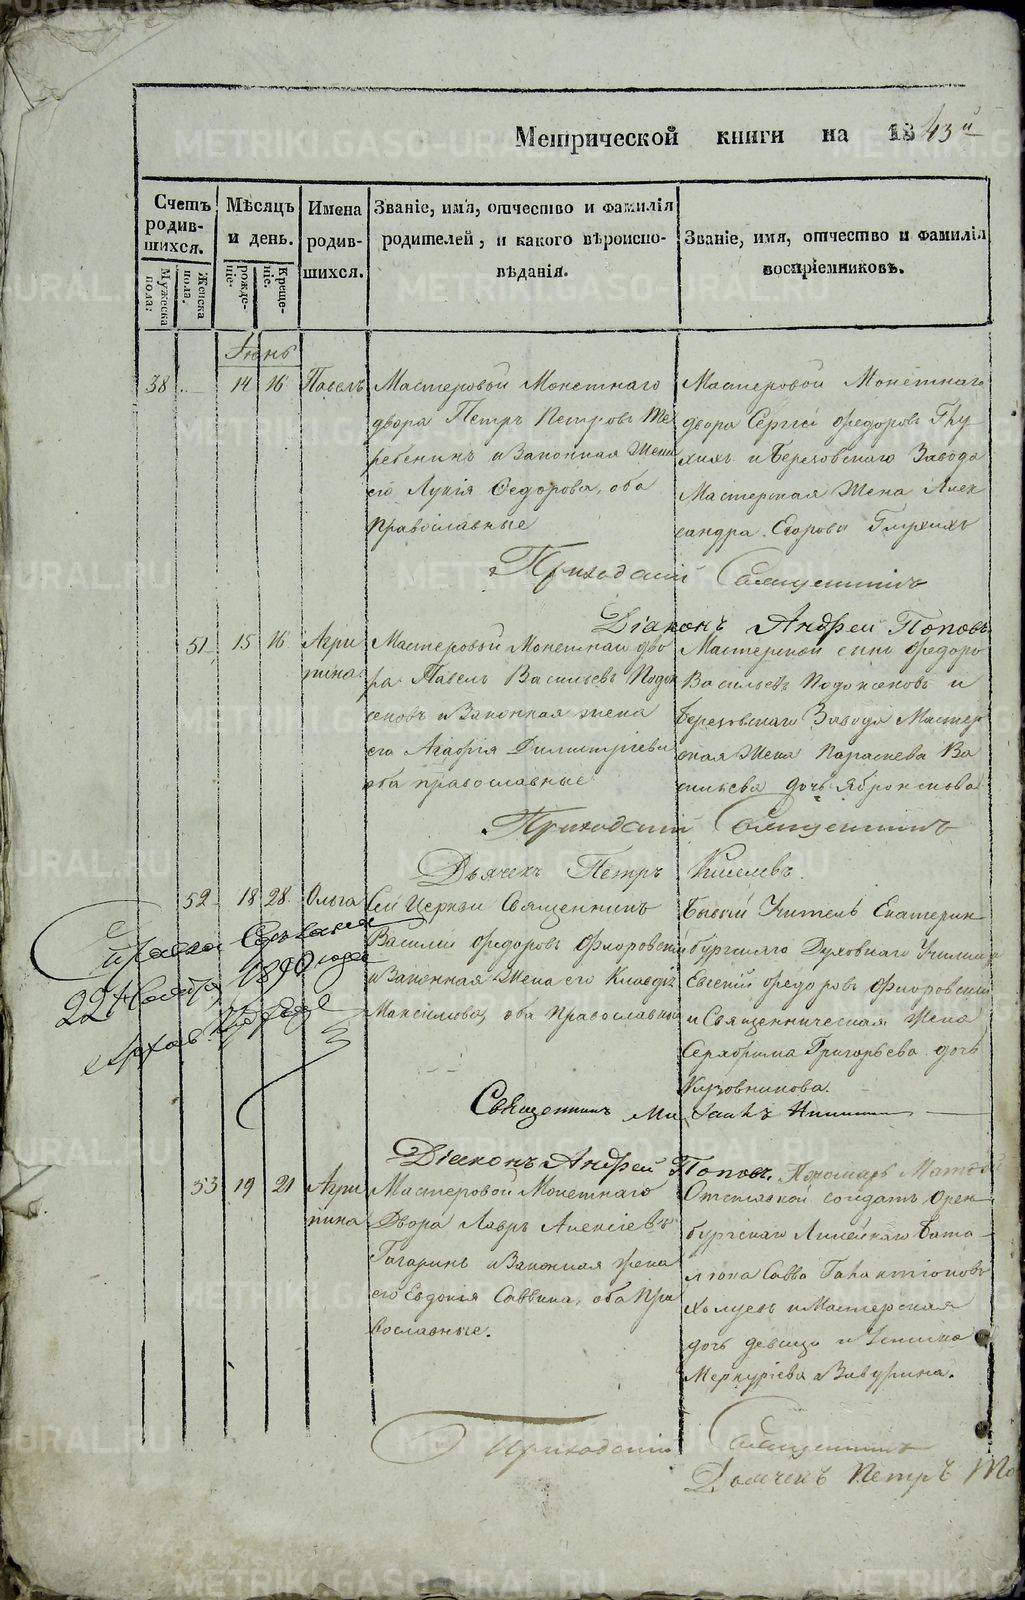 Метрической книги на 1843й
Счетъ родив-шихся.
Мужеска пола:
Женска пола.
Мѣсяцъ и день.
рожде-ніе.
Креще-ніе.
Имена родив-шихся.
Званіе, имя, отчество и фамилія
родителей, и какого вѣроиспо-
вѣданія.
Званіе, имя, отчество и фамилія
воспріемниковъ.
Іюнь
38 14 16 Павелъ
Мастеровой Монетнаго
двора Петръ Петровъ Те
ребенинъ и Законная Жена
его Лукія Ѳедорова, оба
Православные
Мастеровой Монетнаго
двора Сергій Федоровъ Глу
хихъ и Березовскаго Завода
Мастерская Жена Алек
сандра Егорова Глухихъ
Приходскій Священникъ
Діаконъ Андрей Поповъ
51 15 16 Агри
пина
Мастеровой Монетнаго дво
ра Павелъ Васильевъ Подок
сеновъ и Законная жена
его Агафія Димитріева
оба православные
Мастерской сынъ Федоръ
Васильевъ Подоксеновъ и
Березовскаго Завода Мастер
ская Жена Параскева Ва
сильева дочь
Приходскій Священникъ
Дьячекъ Петръ Киселевъ.
52 18 28 Ольга
Сей Церкви Священникъ
Василій Федоровъ Флоровскій
и Законная Жена его Клавдія
Максимова, оба Православные
Бывый Учитель Екатерин
бургскаго Духовнаго Училища
Евгеній Федоровъ Флоровскій
и Священническая Жена
Серафима Григорьева дочь
Кузовникова.
22 1890 года
Священникъ Михаилъ
Діаконъ Андрей Поповъ. Пономарь
53 19 21 Агри
пина
Мастеровой Монетнаго
Двора Лавръ Алексіевъ
Гагаринъ и Законная жена
его Евдокія Саввина, оба Пра
вославные.
Отставной солдатъ Орен
бургскаго Линейнаго Бата
ліона Савва Галактіоновъ
и Мастерская
дочь девица
Меркуріева
Приходскій Священникъ
Дьячекъ Петръ
METRIKI.GASO-URAL.RU